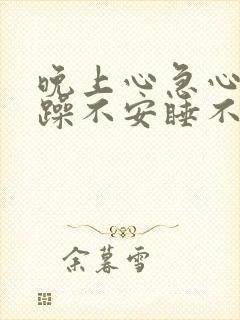 晚上心急心
躁不安睡不
余暮雪